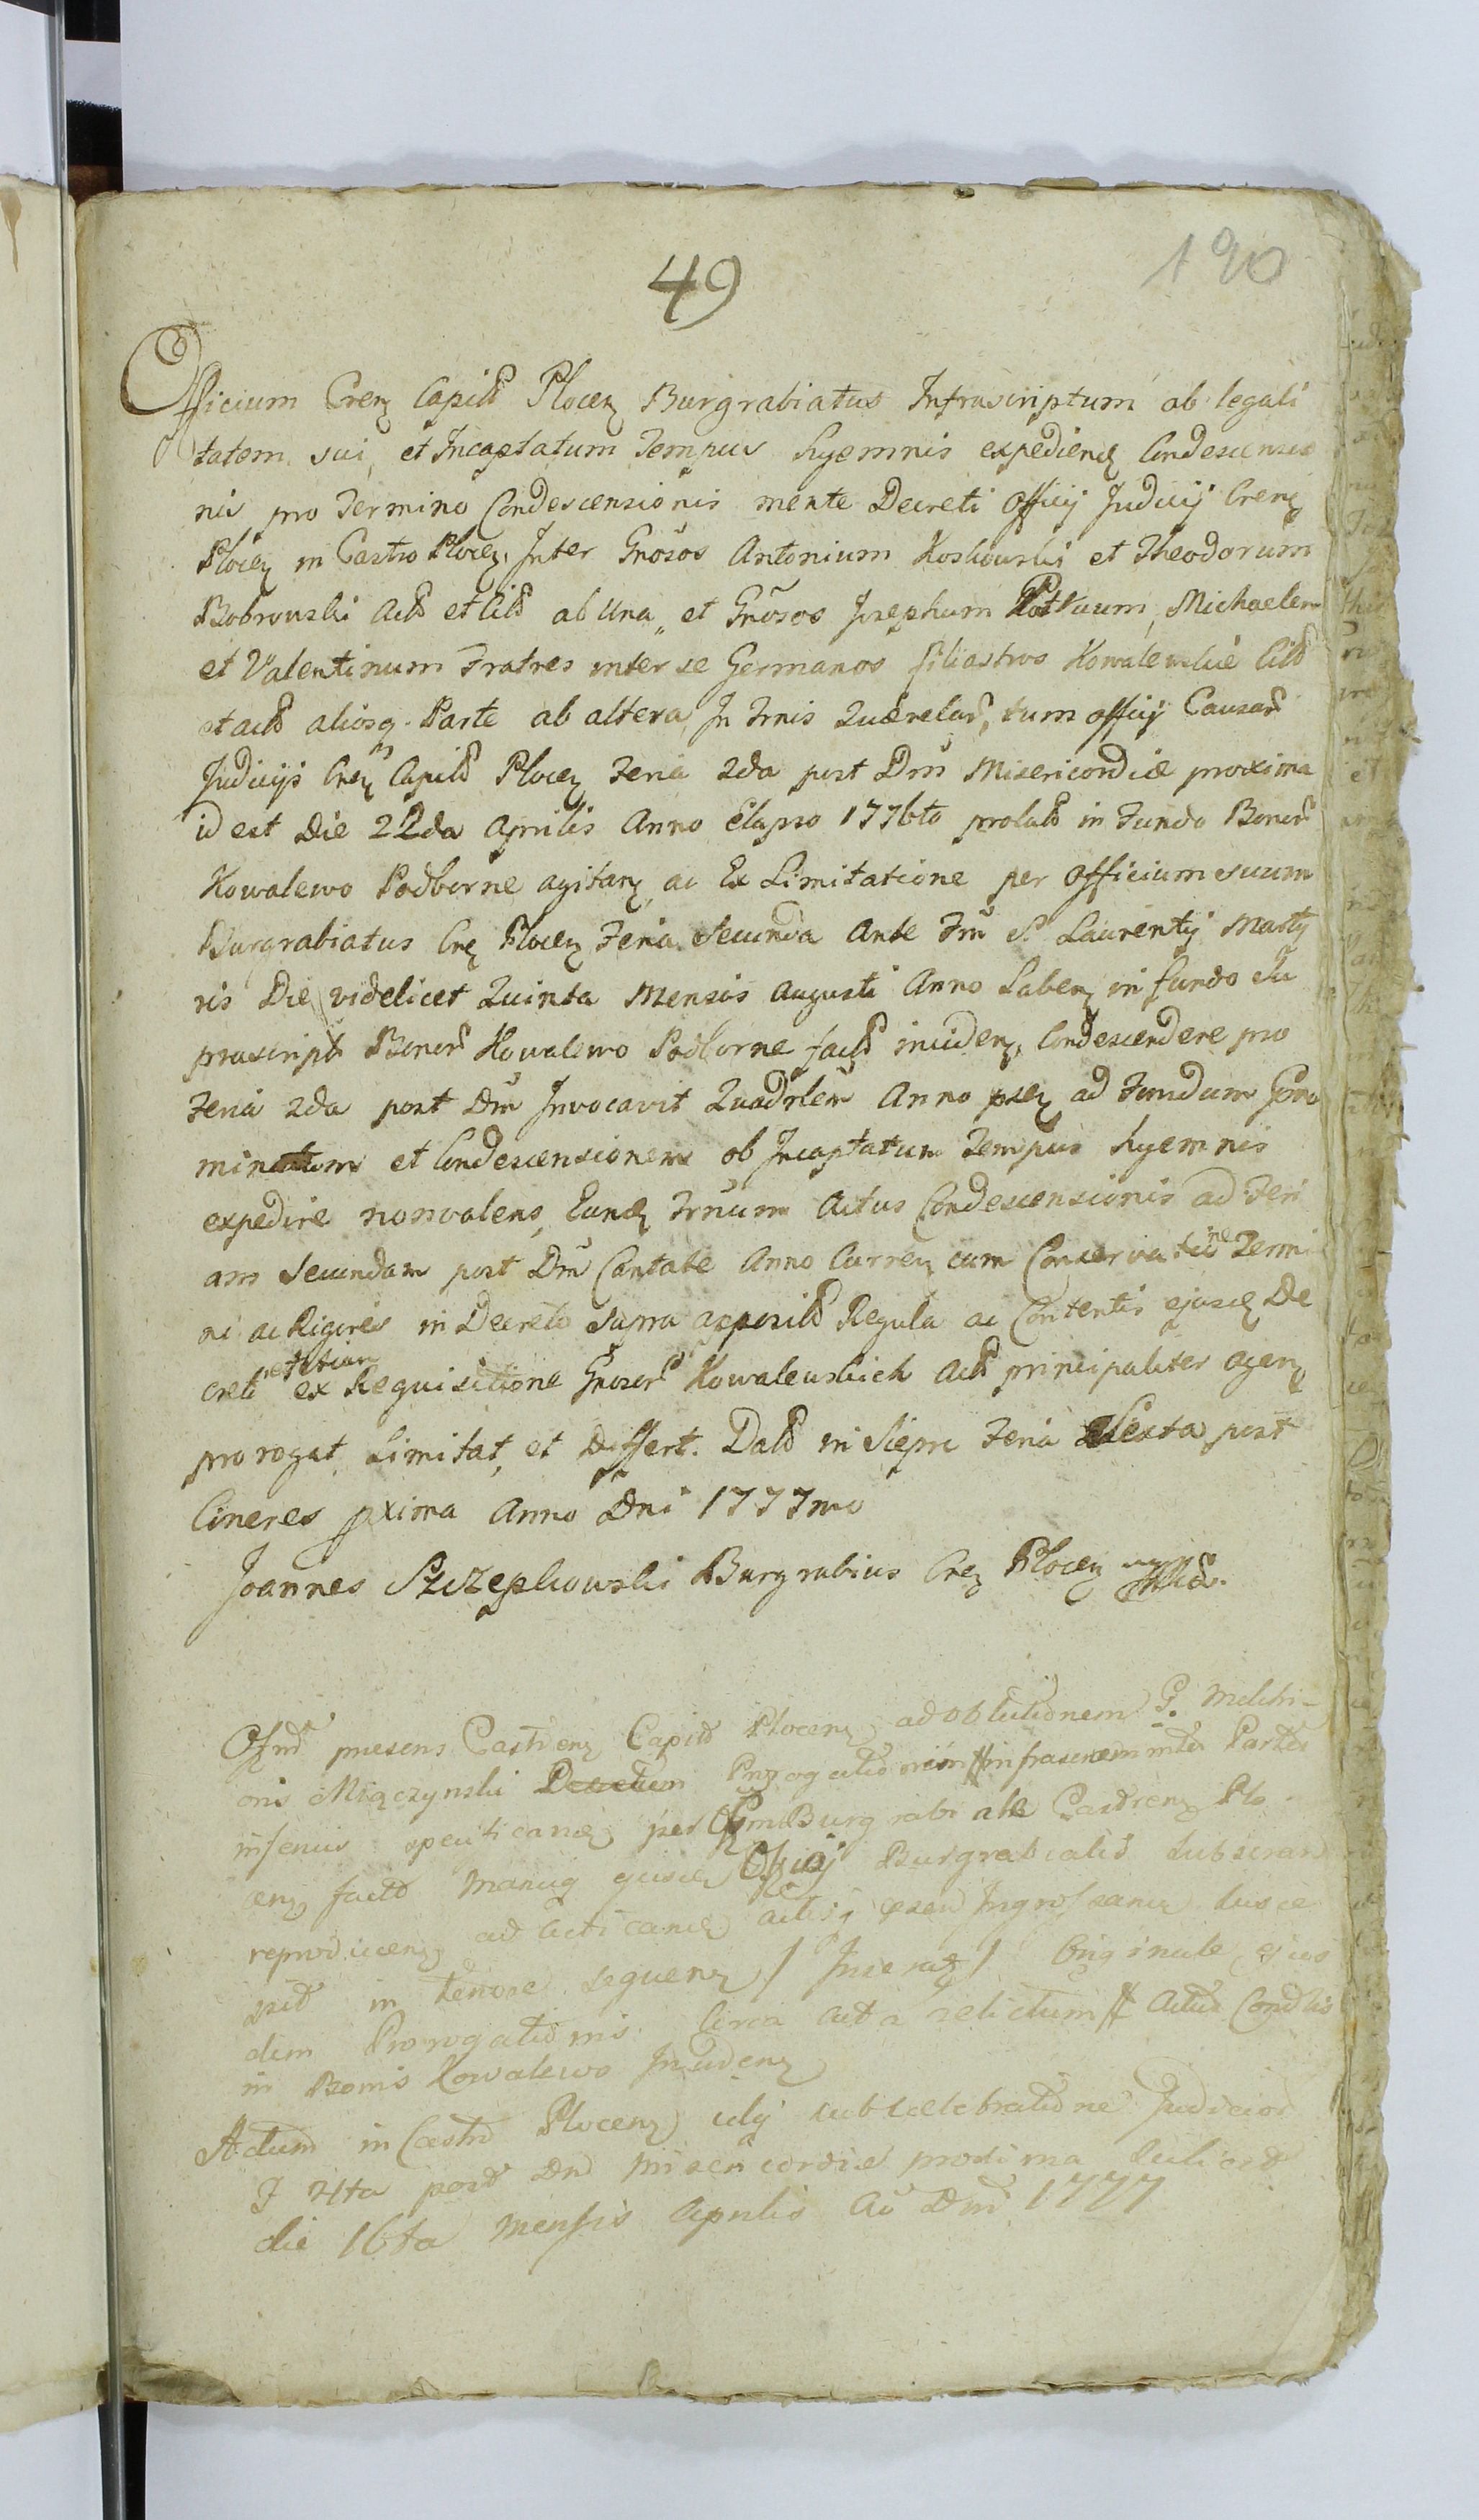 49
190
Officium Cren Capitl Plocen Burgrabiatus Infrascriptum ob legali
tatem sui, et Incaptatum Tempus hyemnis expediend Condescensio
nis pro Termino Condescensionis mente Decreti Officij Judicij Cren
Plocen in Castro Plocen Inter Grosos Antonium Koskowski et Theodorum
Bobrowski Act et Cit ab Una, et Grosos Josephum Michaelem
et Valentinum Fratres inter se Germanos filiastros Kowalewskie Cit
et act aliosq Parte ab altera, In Trnis Querelar, tum officij Causar
Judicijs Cren Capitl Plocen Feria 2da post Dm Misericordiæ proxima
id est Die 22da Aprilis Anno Elapso 1776to prolat in Fundo Bonor
Kowalewo Podborne agitan, ac Ex Limitatione per Officium suum
Burgrabiatus Cren Plocen Feria Secunda Ante Fm S. Laurentij Marty
ris Die videlicet Quinta Mensis Augusti Anno Laben in fundo Su
prascript Bonor Kowalewo Podborne fact inciden, Condescendere pro
Feria 2da post Dm Invocavit Quadrlem Anno psen ad Fundum
et Condescensionem ob Incaptatum Tempus hyemnis
expedire nonvalens, Eund Trnum Actus Condescensionis ad Feri
am Secundam post Dm Cantate Anno Curren cum Conservatione Termi
ni ac Rigoris in Decreto Supra apposit Regula ac Contentis ejusd De
creti ad petitum ex Requisitione Grosor Kowalewskich Act principaliter agen
prorogat Limitat, et Differt. Dat in Sierpc Feria Sexta post
Cineres pxima Anno Dni 1777mo
Joannes Szczepkowski Burgrabius Cren Plocen mp
Offm præsens Castren Capitl Plocen ad oblationem G. Melchi-
oris Miączynski Decretum Prorogationem infrascrem inter Partes
inferius specificand per Offm Burgrabiale Castren Plo
cen fact Manuq ejusd Officij Burgrabialis Subscrat
reproducen ad acticand actisq psen Ingrossand susce
pit in tenore sequen / Inserat / Originale ejus
dem Prorogationis Circa acta relictum # Actus Condnis
in Bonis Kowalewo Inciden
Actum in Castro Plocen sub celebratione Judicior
F 4ta post Dm Misericordiæ proxima
die 16ta Mensis Aprilis Ao Dni 1777